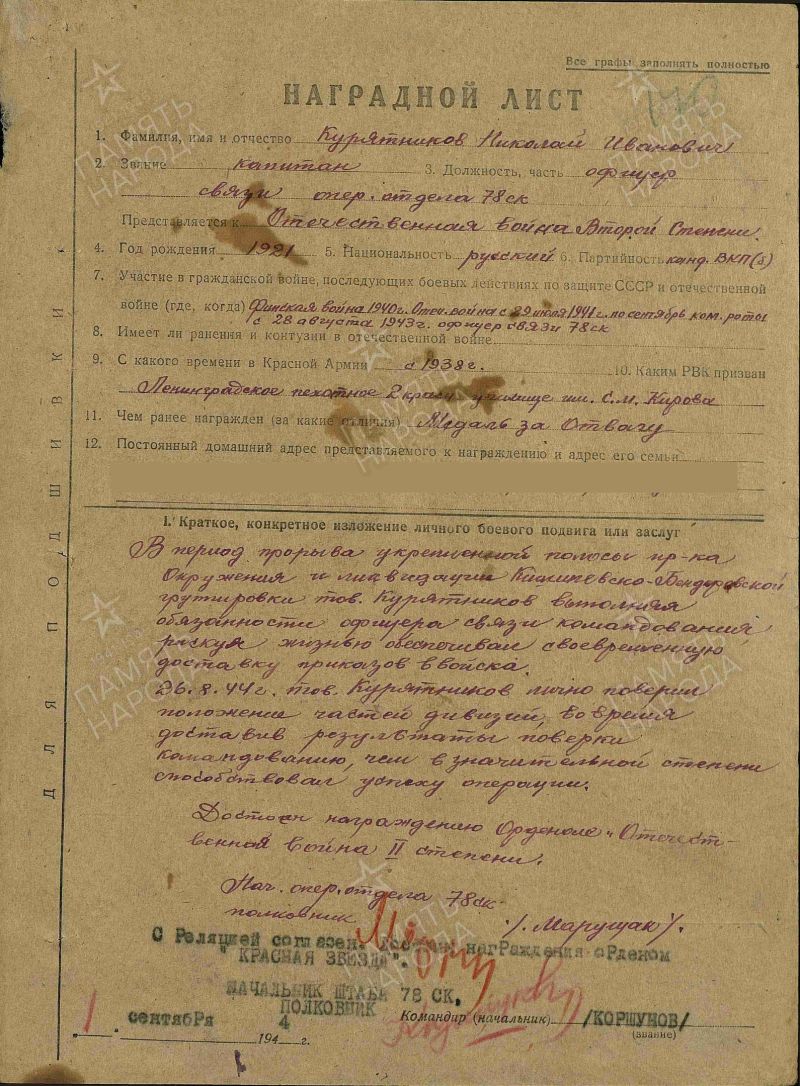 Все графы заполнять полностью
НАГРАДНОЙ ЛИСТ
1. Фамилия, имя и отчество Курятников Николай Иванович
2. Звание капитан 3. Должность, часть офицер
связи опер. отдела 78 ск
Представляется к Отечественная война Второй Степени.
4. Год рождения 1921 5. Национальность русский 6. Партийность канд. ВКП(б)
7. Участие в гражданской войне, последующих боевых действиях по защите СССР и отечественной
войне (где, когда) Финская война 1940г. Отеч. война с 29 июля 1941г. по сентябрь ком. роты
с 28 августа 1943г. офицер связи 78 ск
8. Имеет ли ранения и контузии в отечественной войне
9. С какого времени в Красной Армии с 1938 г. 10. Каким РВК призван
Ленинградское пехотное 2 красн. училище им. С.М. Кирова
11. Чем ранее награжден (за какие отличия) Медаль за Отвагу
12. Постоянный домашний адрес представляемого к награждению и адрес его семьи
I. Краткое, конкретное изложение личного боевого подвига или заслуг
В период прорыва укрепленной полосы пр-ка
Окружения и ликвизации Кишиневско-Бендеровской
групировки тов. Курятников выполняя
обязанности офицера связи командования,
рискуя жизнью обеспечивал своевременную
доставку приказов в войска.
26.8.44г. тов. Курятников лично поверил
положение частей дивизий, во время
доставив результаты поверки
командованию, чем в значительной степени
способствовал успеху операции.
Достоин награждению Орденом „Отечест-
венная война II степени.
Нач. опер. отдела 78 ск
полковник /Марущак/.
С Реляцией согласен. Достоин награждения орденом
"КРАСНАЯ ЗВЕЗДА".
НАЧАЛЬНИК ШТАБА 78 СК,
ПОЛКОВНИК
Командир (начальник) /КОРШУНОВ/
(звание)
1 сентября 1944 г.
ДЛЯ ПОДШИВКИ
ПАМЯТЬ НАРОДА
ПАМЯТЬ НАРОДА
ПАМЯТЬ НАРОДА
ПАМЯТЬ НАРОДА
ПАМЯТЬ НАРОДА
ПАМЯТЬ НАРОДА